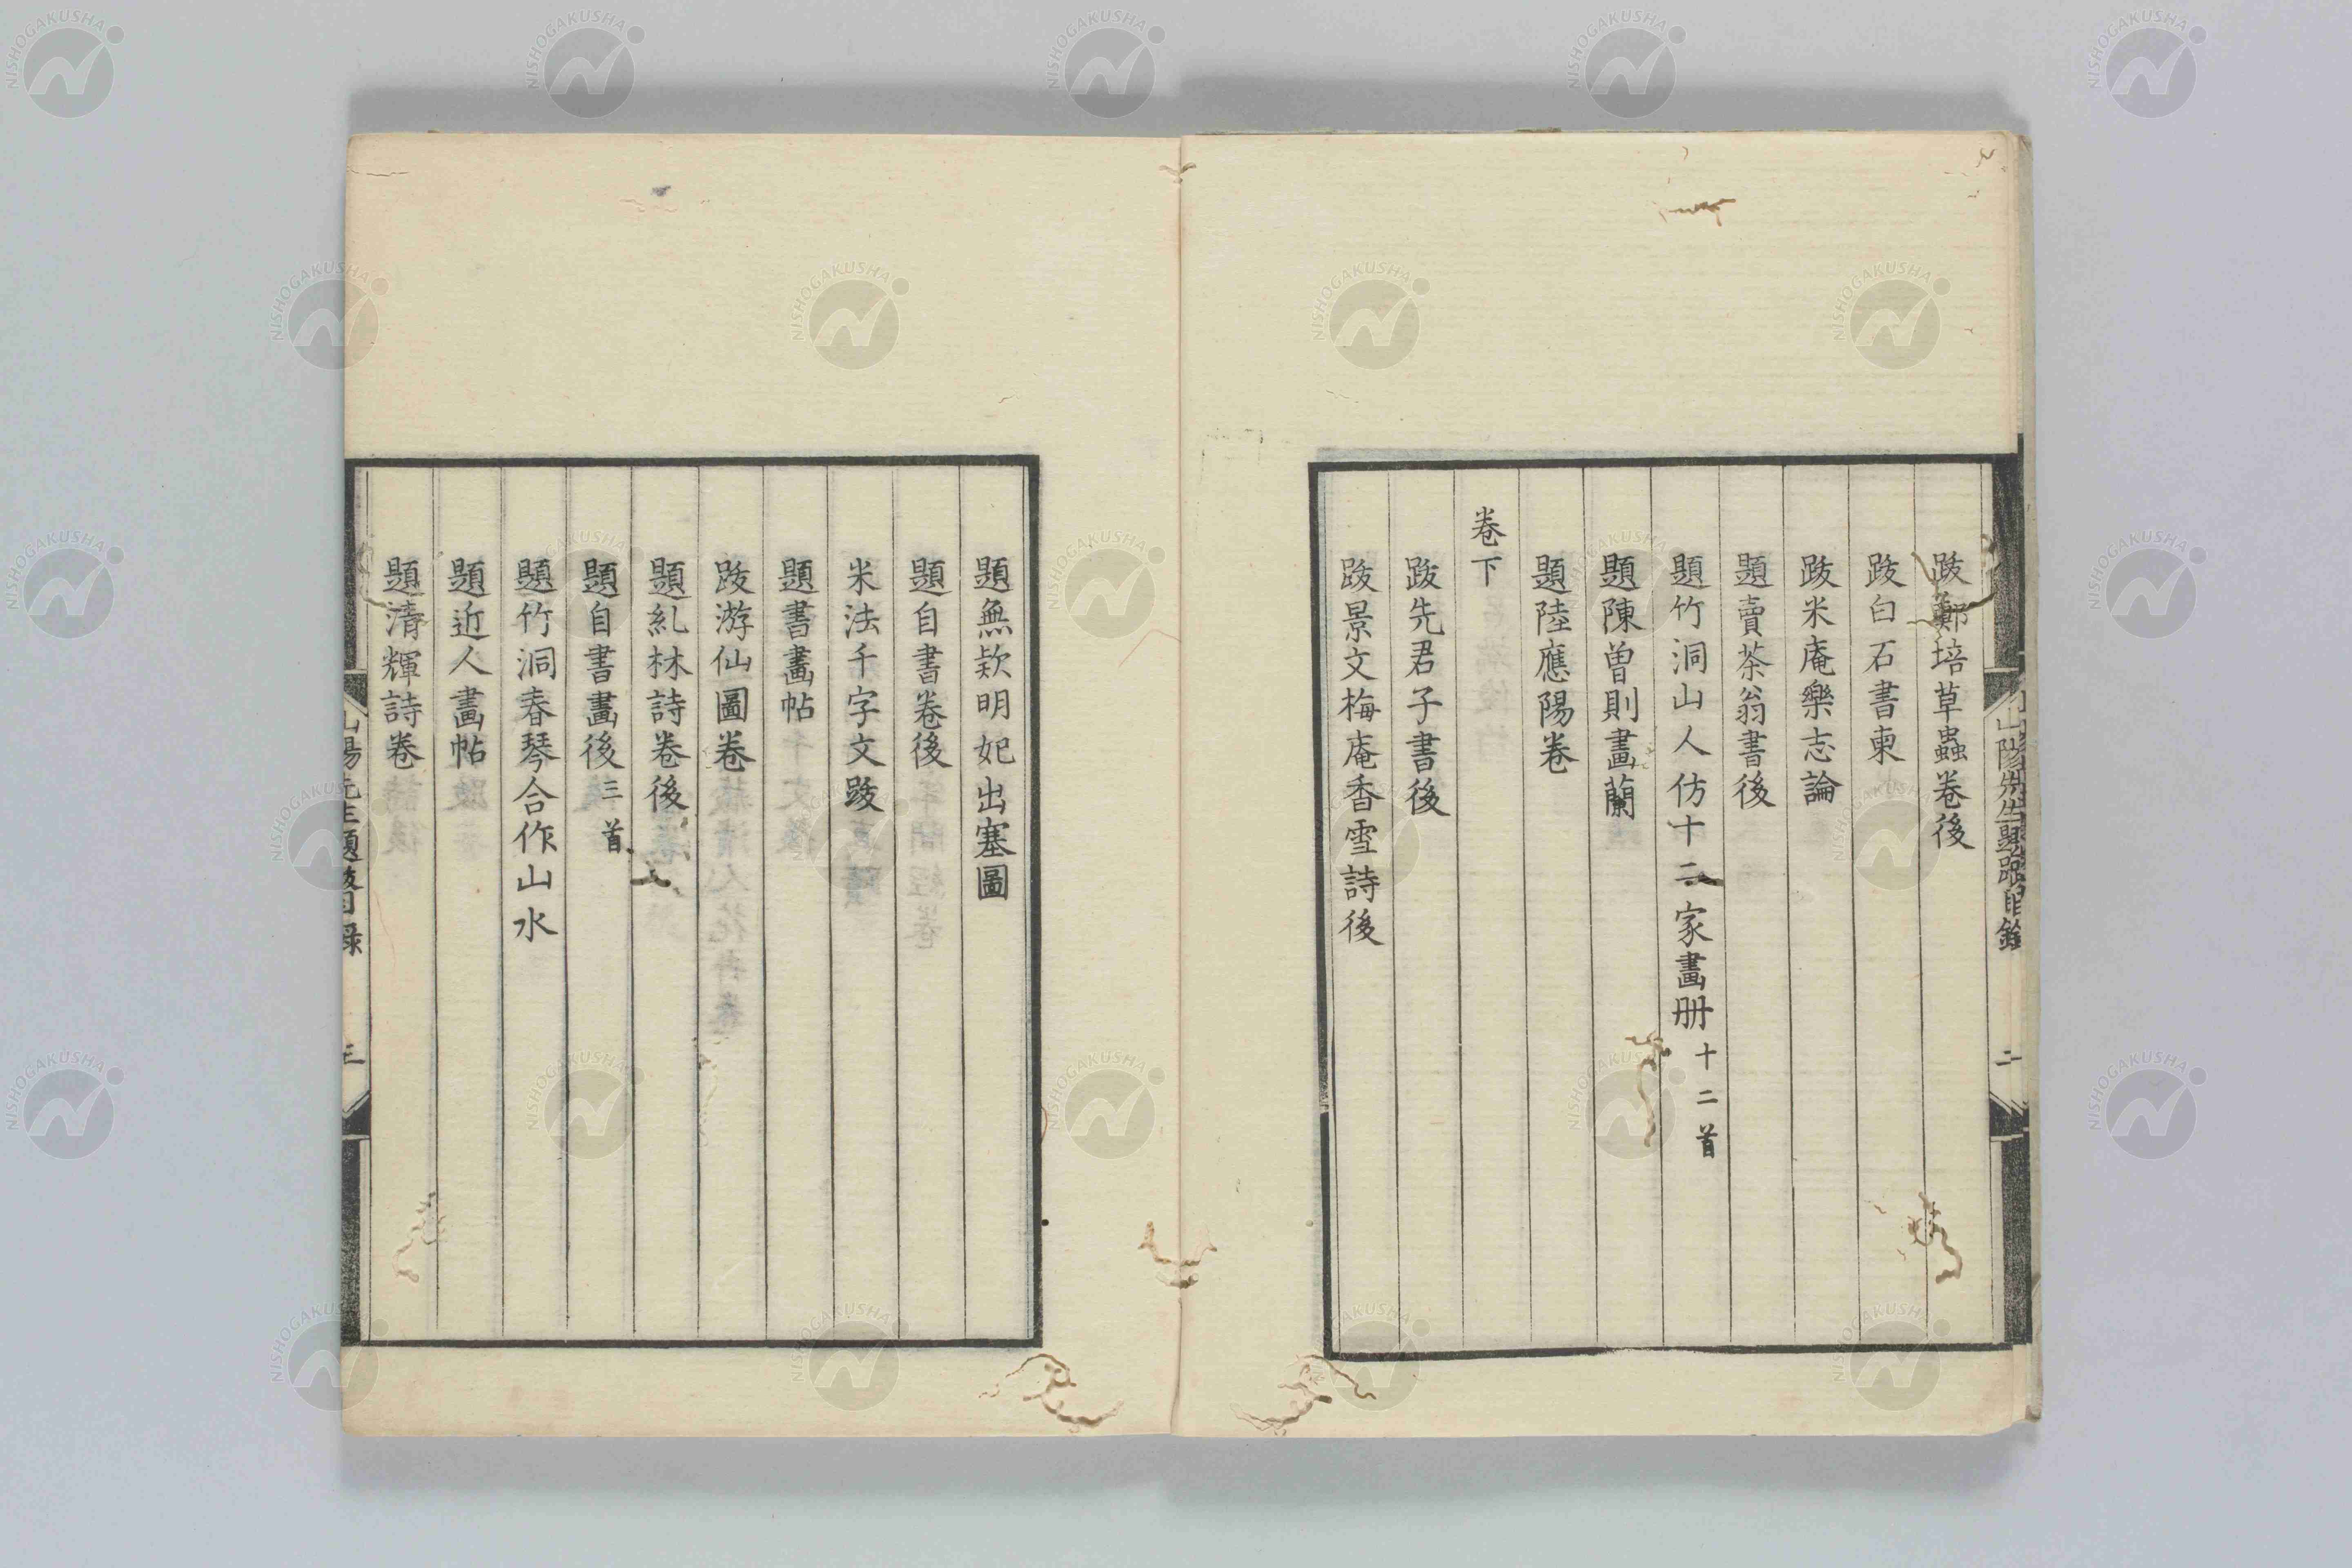 跋鄭培草蟲卷後
跋白石書柬
跋米庵樂志論
題賣茶翁書後
題竹洞山人仿十二家畫册十二首
題陳曽則畫蘭
題陸應陽卷
卷下
跋先君子書後
跋景文梅庵香雪詩後
山陽先生題跋目錄
二
題無款明妃出塞圖
題自書卷後
米法千字文跋
題書畫帖
跋游仙圖卷
題乣林詩卷後
題自書畫後三首
題竹洞春琴合作山水
題近人畫帖
題清輝詩卷
山陽先生題跋目錄
三
NISHOGAKUSHA